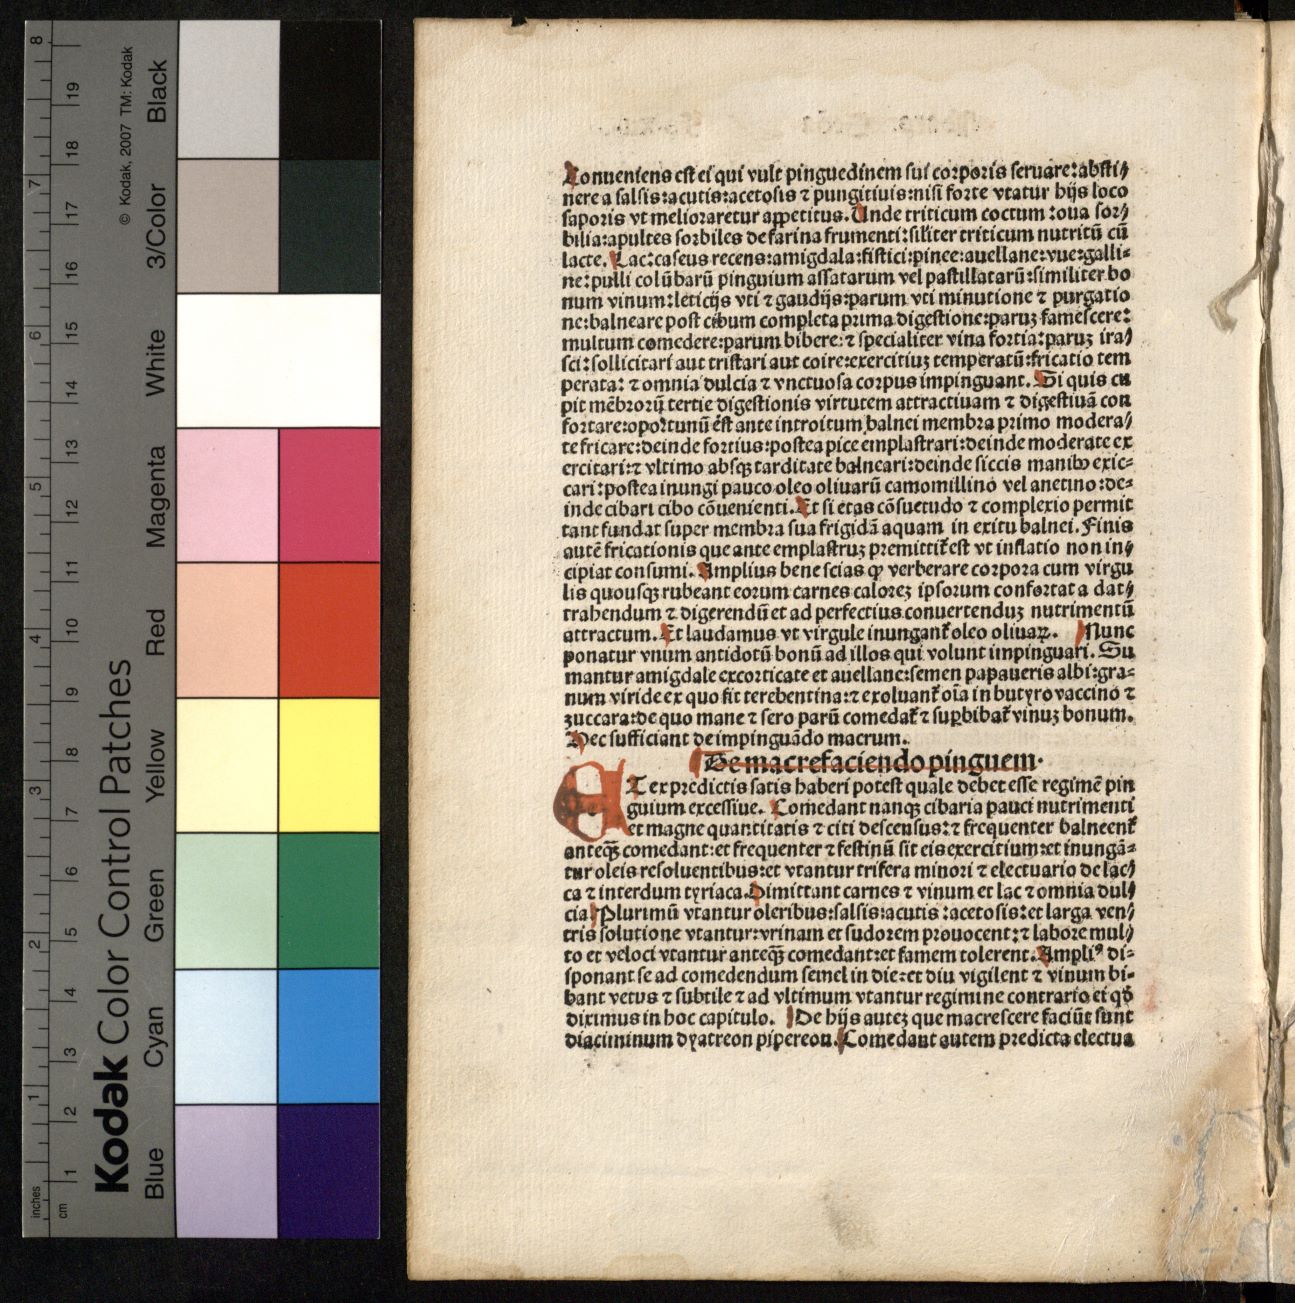 Kodak Color Control Patches
© Kodak, 2007 TM: Kodak
Blue Cyan Green Yellow Red Magenta White 3/Color Black
inches 1 2 3 4 5 6 7 8
cm 1 2 3 4 5 6 7 8 9 10 11 12 13 14 15 16 17 18 19
Conueniens est ei qui vult pinguedinem sui corporis seruare: absti⸗
nere a salsis: acutis: acetosis ⁊ pungitiuis: nisi forte vtatur hijs loco
saporis vt melioraretur appetitus. Unde triticum coctum: oua sor⸗
bilia: apultes sorbiles de farina frumenti: siliter triticum nutritū cū
lacte. Lac: caseus recens: amigdala: fistici: pinee: auellane: vue: galli⸗
ne: pulli colūbarū pinguium assatarum vel pastillatarū: similiter bo
num vinum: leticijs vti ⁊ gaudijs: parum vti minutione ⁊ purgatio
ne: balneare post cibum completa prima digestione: paruꝫ famescere:
multum comedere: parum bibere: ⁊ specialiter vina fortia: paruꝫ ira⸗
sci: sollicitari aut tristari aut coire: exercitiuꝫ temperatū: fricatio tem
perata: ⁊ omnia dulcia ⁊ vnctuosa corpus impinguant. Si quis cu
pit mēbrorū tertie digestionis virtutem attractiuam ⁊ digestiuā con
fortare: oportunū est ante introitum balnei membra primo modera⸗
te fricare: deinde fortius: postea pice emplastrari: deinde moderate ex
ercitari: ⁊ vltimo absqꝫ tarditate balneari: deinde siccis manibꝰ exic⸗
cari: postea inungi pauco oleo oliuarū camomillino vel anetino: de⸗
inde cibari cibo cōuenienti. Et si etas cōsuetudo ⁊ complexio permit
tant fundat super membra sua frigidā aquam in exitu balnei. Finis
autē fricationis que ante emplastruꝫ premittit̄ est vt inflatio non in⸗
cipiat consumi. Amplius bene scias ꝙ verberare corpora cum virgu
lis quousqꝫ rubeant eorum carnes calorez ipsorum confortat a dat⸗
trahendum ⁊ digerendū et ad perfectius conuertenduꝫ nutrimentū
attractum. Et laudamus vt virgule inungant̄ oleo oliuaꝝ. Nunc
ponatur vnum antidotū bonū ad illos qui volunt inpinguari. Su
mantur amigdale excorticate et auellane: semen papaueris albi: gra⸗
num viride ex quo fit terebentina: ⁊ exoluant̄ oīa in butyro vaccino ⁊
zuccara: de quo mane ⁊ sero parū comedat̄ ⁊ suꝑbibat̄ vinuꝫ bonum.
Hec sufficiant de impinguādo macrum.
De macrefaciendo pinguem.
ET ex predictis satis haberi potest quale debet esse regimē pin
guium excessiue. Comedant nanqꝫ cibaria pauci nutrimenti
et magne quantitatis ⁊ citi descensus: ⁊ frequenter balneent̄
anteqꝫ̄ comedant: et frequenter ⁊ festinū sit eis exercitium: et inungā⸗
tur oleis resoluentibus: et vtantur trifera minori ⁊ electuario de lac⸗
ca ⁊ interdum tyriaca. Dimittant carnes ⁊ vinum et lac ⁊ omnia dul⸗
cia. Plurimū vtantur oleribus: salsis: acutis: acetosis: et larga ven⸗
tris solutione vtantur: vrinam et sudorem prouocent: ⁊ labore mul⸗
to et veloci vtantur anteqꝫ̄ comedant: et famem tolerent. Ampliꝰ di⸗
sponant se ad comedendum semel in die: et diu vigilent ⁊ vinum bi⸗
bant vetus ⁊ subtile ⁊ ad vltimum vtantur regimine contrario ei qđ
diximus in hoc capitulo. De hijs autez que macrescere faciūt sunt
diaciminum dyatreon pipereon. Comedant autem predicta electua